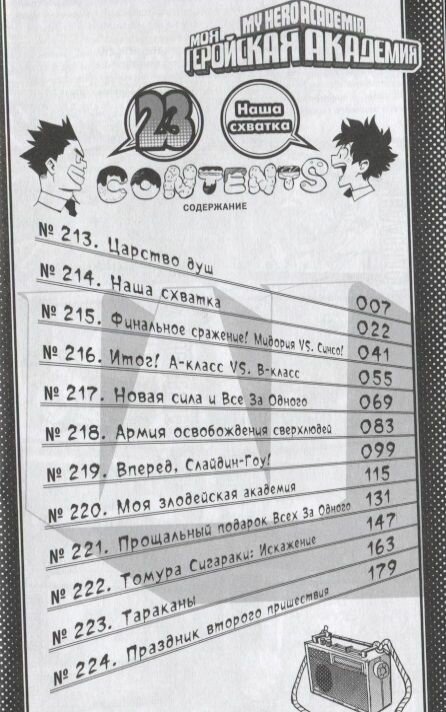 MY HERO ACADEMIA
МОЯ
ГЕРОЙСКАЯ АКАДЕМИЯ
23
Наша
схватка
CONTENTS
СОДЕРЖАНИЕ
№ 213. Царство душ 007
№ 214. Наша схватка 022
№ 215. Финальное сражение! Мидория VS. Синсо! 041
№ 216. Итог! А-класс VS. В-класс 055
№ 217. Новая сила и Все За Одного 069
№ 218. Армия освобождения сверхлюдей 083
№ 219. Вперед, Слайдин-Гоу! 099
№ 220. Моя злодейская академия 115
№ 221. Прощальный подарок Всех За Одного 131
№ 222. Томура Сигараки: Искажение 147
№ 223. Тараканы 163
№ 224. Праздник второго пришествия 179